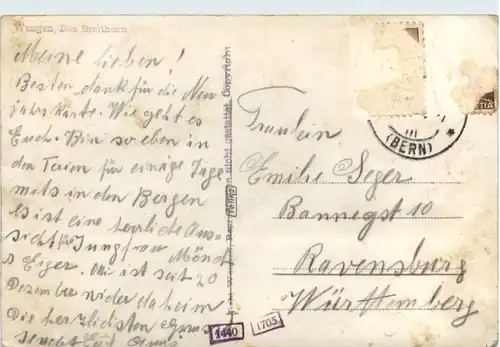 Wengen, Das Breithorn
Meine lieben!
Besten dank für die Neu
jahrskarte. Wie geht es
Euch. Bin so eben in
den Ferien für einige Tage
mals in den Bergen
Es ist eine herrliche Aus-
sicht Jungfrau Mönch
Eiger. ist seit 20
Dezember wider daheim
Die herzlichsten Grüss
Euch
nicht gestattet. Copyright
Fraulein
Emilie Seger
Bannegst 10
Ravensburg
Württemberg
III
(BERN) *
1440
1705